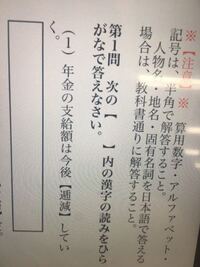 ※【注意】※ 算用数字・アルファベット・
記号は、半角で解答すること。
人物名・地名・固有名詞を日本語で答える
場合は、教科書通りに解答すること。
第1問 次の【 】内の漢字の読みをひら
がなで答えなさい。
(1) 年金の支給額は今後【逓減】してい
く。